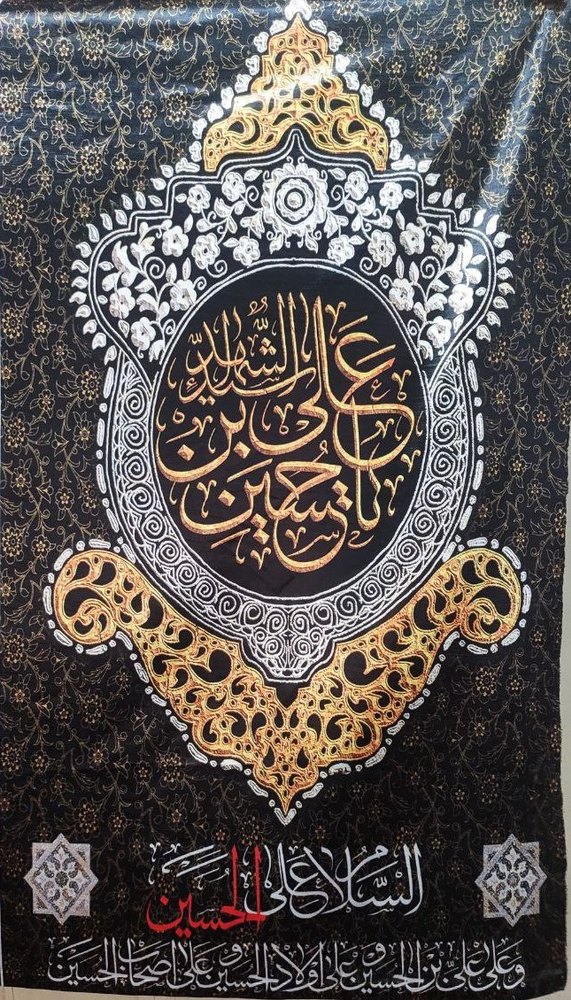 يا علي بن حسين الشهيد
السلام على الحسين
وعلى علي بن الحسين وعلى اولاد الحسين وعلى اصحاب الحسين